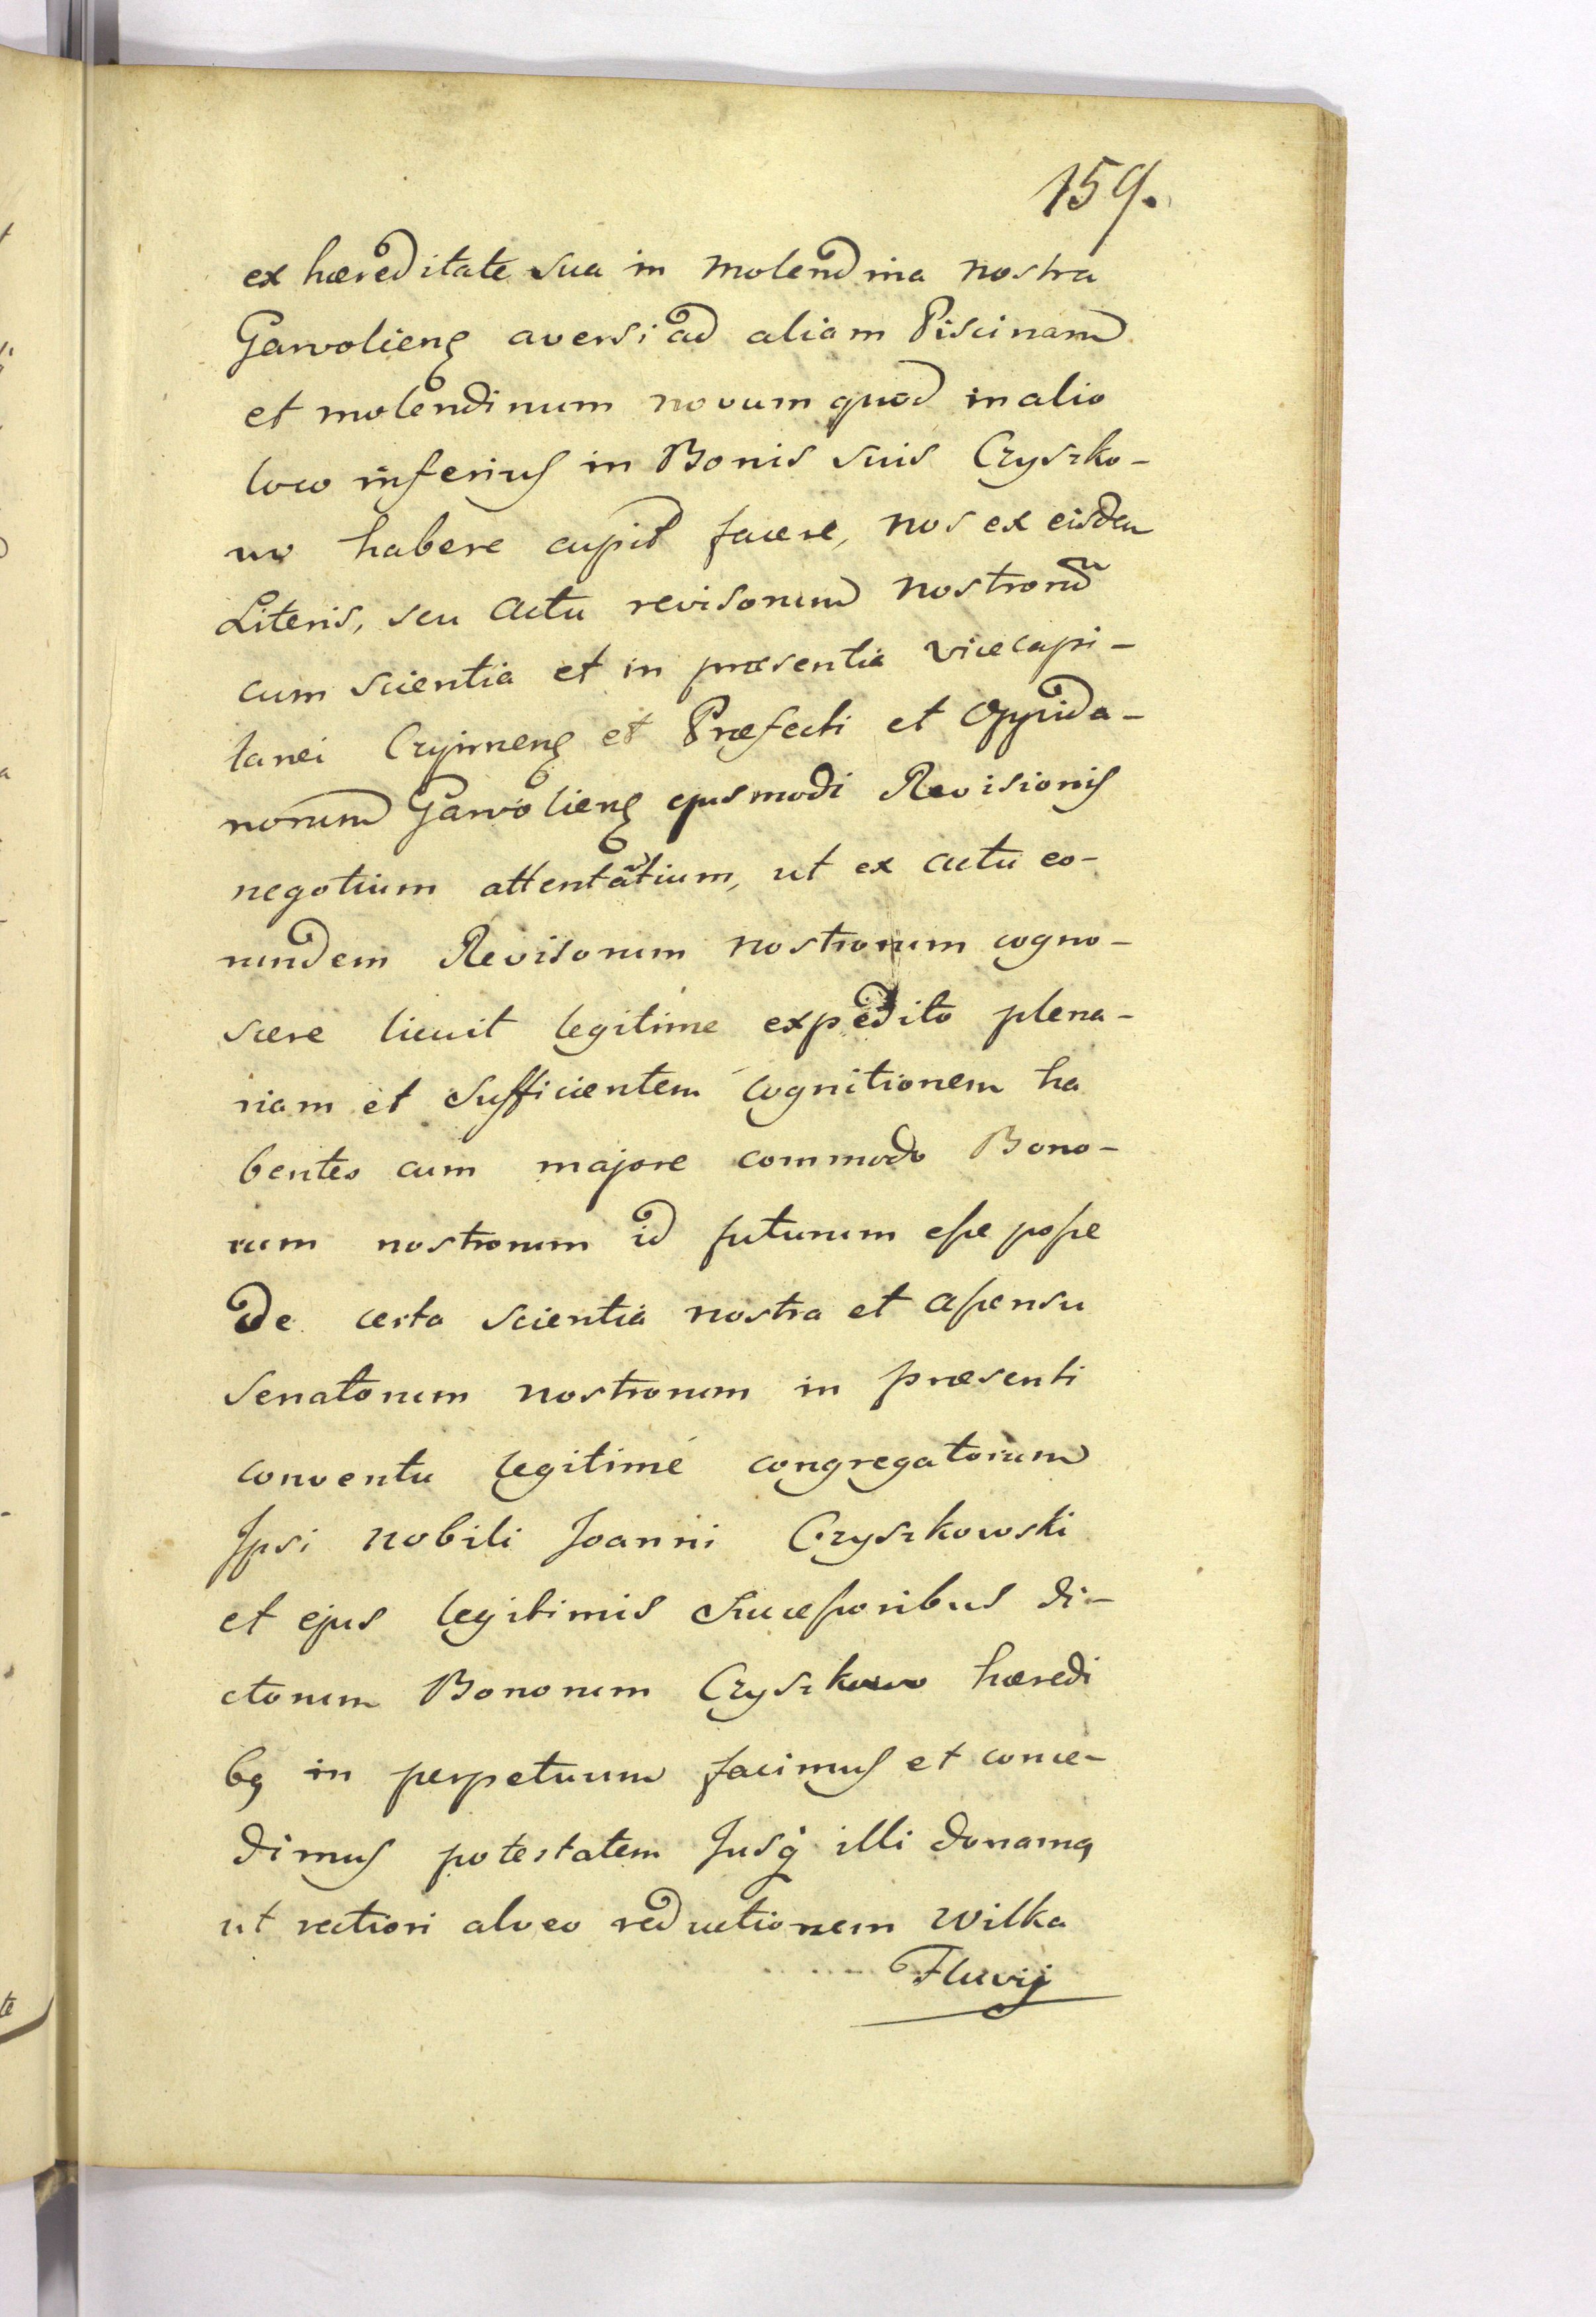 159.
ex hæreditate sua in molendina nostra
Garvolieng aversi ad aliam Piscinam
et molendinum novum quod in alio
loco inferius in Bonis suis Czyszko-
wo habere cupit facere, nos ex eisdem
Literis, seu Actu revisorum nostrorũ
cum scientia et in præsentia vicecapi-
tanei et Præfecti et Oppida-
norum Garvolieng ejusmodi Revisionis
negotium ut ex actu eo-
rundem Revisorum nostrorum cogno-
scere licuit legitime expedito plena-
riam et sufficientem cognitionem ha
bentes cum majore commodo Bono-
rum nostrorum id futurum esse posse
De certa scientia nostra et assensu
Senatorum nostrorum in præsenti
conventu legitime congregatorum
Ipsi nobili Joanni Czyszkowski
et ejus legitimis Successoribus di-
ctorum Bonorum Czyszkowo hæredi
bq in perpetuum facimus et conce-
dimus potestatem Jusq illi donamq
ut rectiori alveo reductionem Wilka
Fluvij